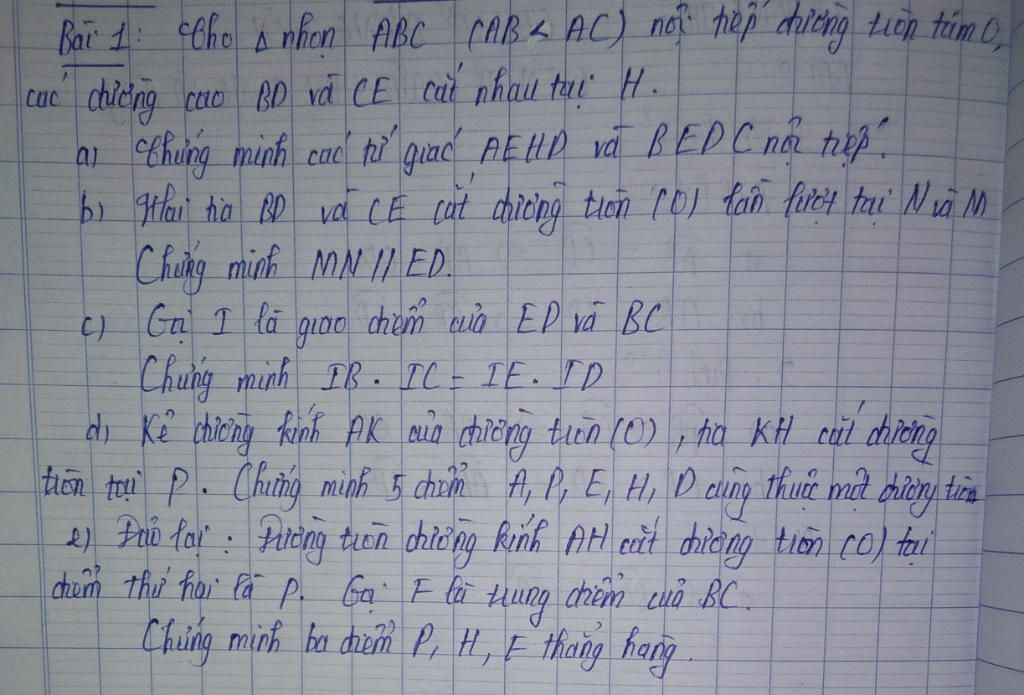 Bài 1: Cho Δ nhọn ABC (AB < AC) nội tiếp đường tròn tâm O,
các đường cao BD và CE cắt nhau tại H.
a) Chứng minh các tứ giác AEHD và BEDC nội tiếp.
b) Hai tia BD và CE cắt đường tròn (O) lần lượt tại N và M
Chứng minh MN // ED.
c) Gọi I là giao điểm của ED và BC
Chứng minh IB . IC = IE . ID
d) Kẻ đường kính AK của đường tròn (O), tia KH cắt đường
tròn tại P. Chứng minh 5 điểm A, P, E, H, D cùng thuộc một đường tròn
e) Đảo lại : Đường tròn đường kính AH cắt đường tròn (O) tại
điểm thứ hai là P. Gọi F là trung điểm của BC.
Chứng minh ba điểm P, H, F thẳng hàng.